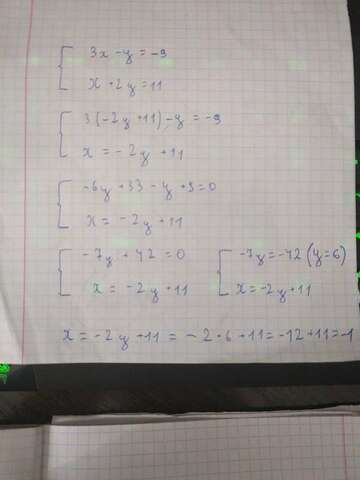 3x - y = -9
x + 2y = 11
3(-2y + 11) - y = -9
x = -2y + 11
-6y + 33 - y + 9 = 0
x = -2y + 11
-7y + 42 = 0 -7y = -42 (y = 6)
x = -2y + 11 x = -2y + 11
x = -2y + 11 = -2 · 6 + 11 = -12 + 11 = -1